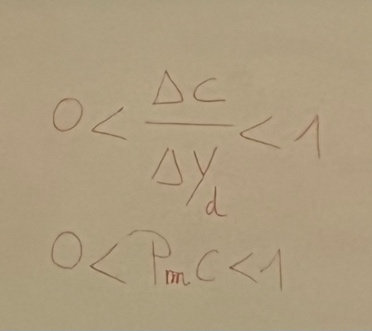 0 < ΔC / ΔY_d < 1
0 < PmC < 1